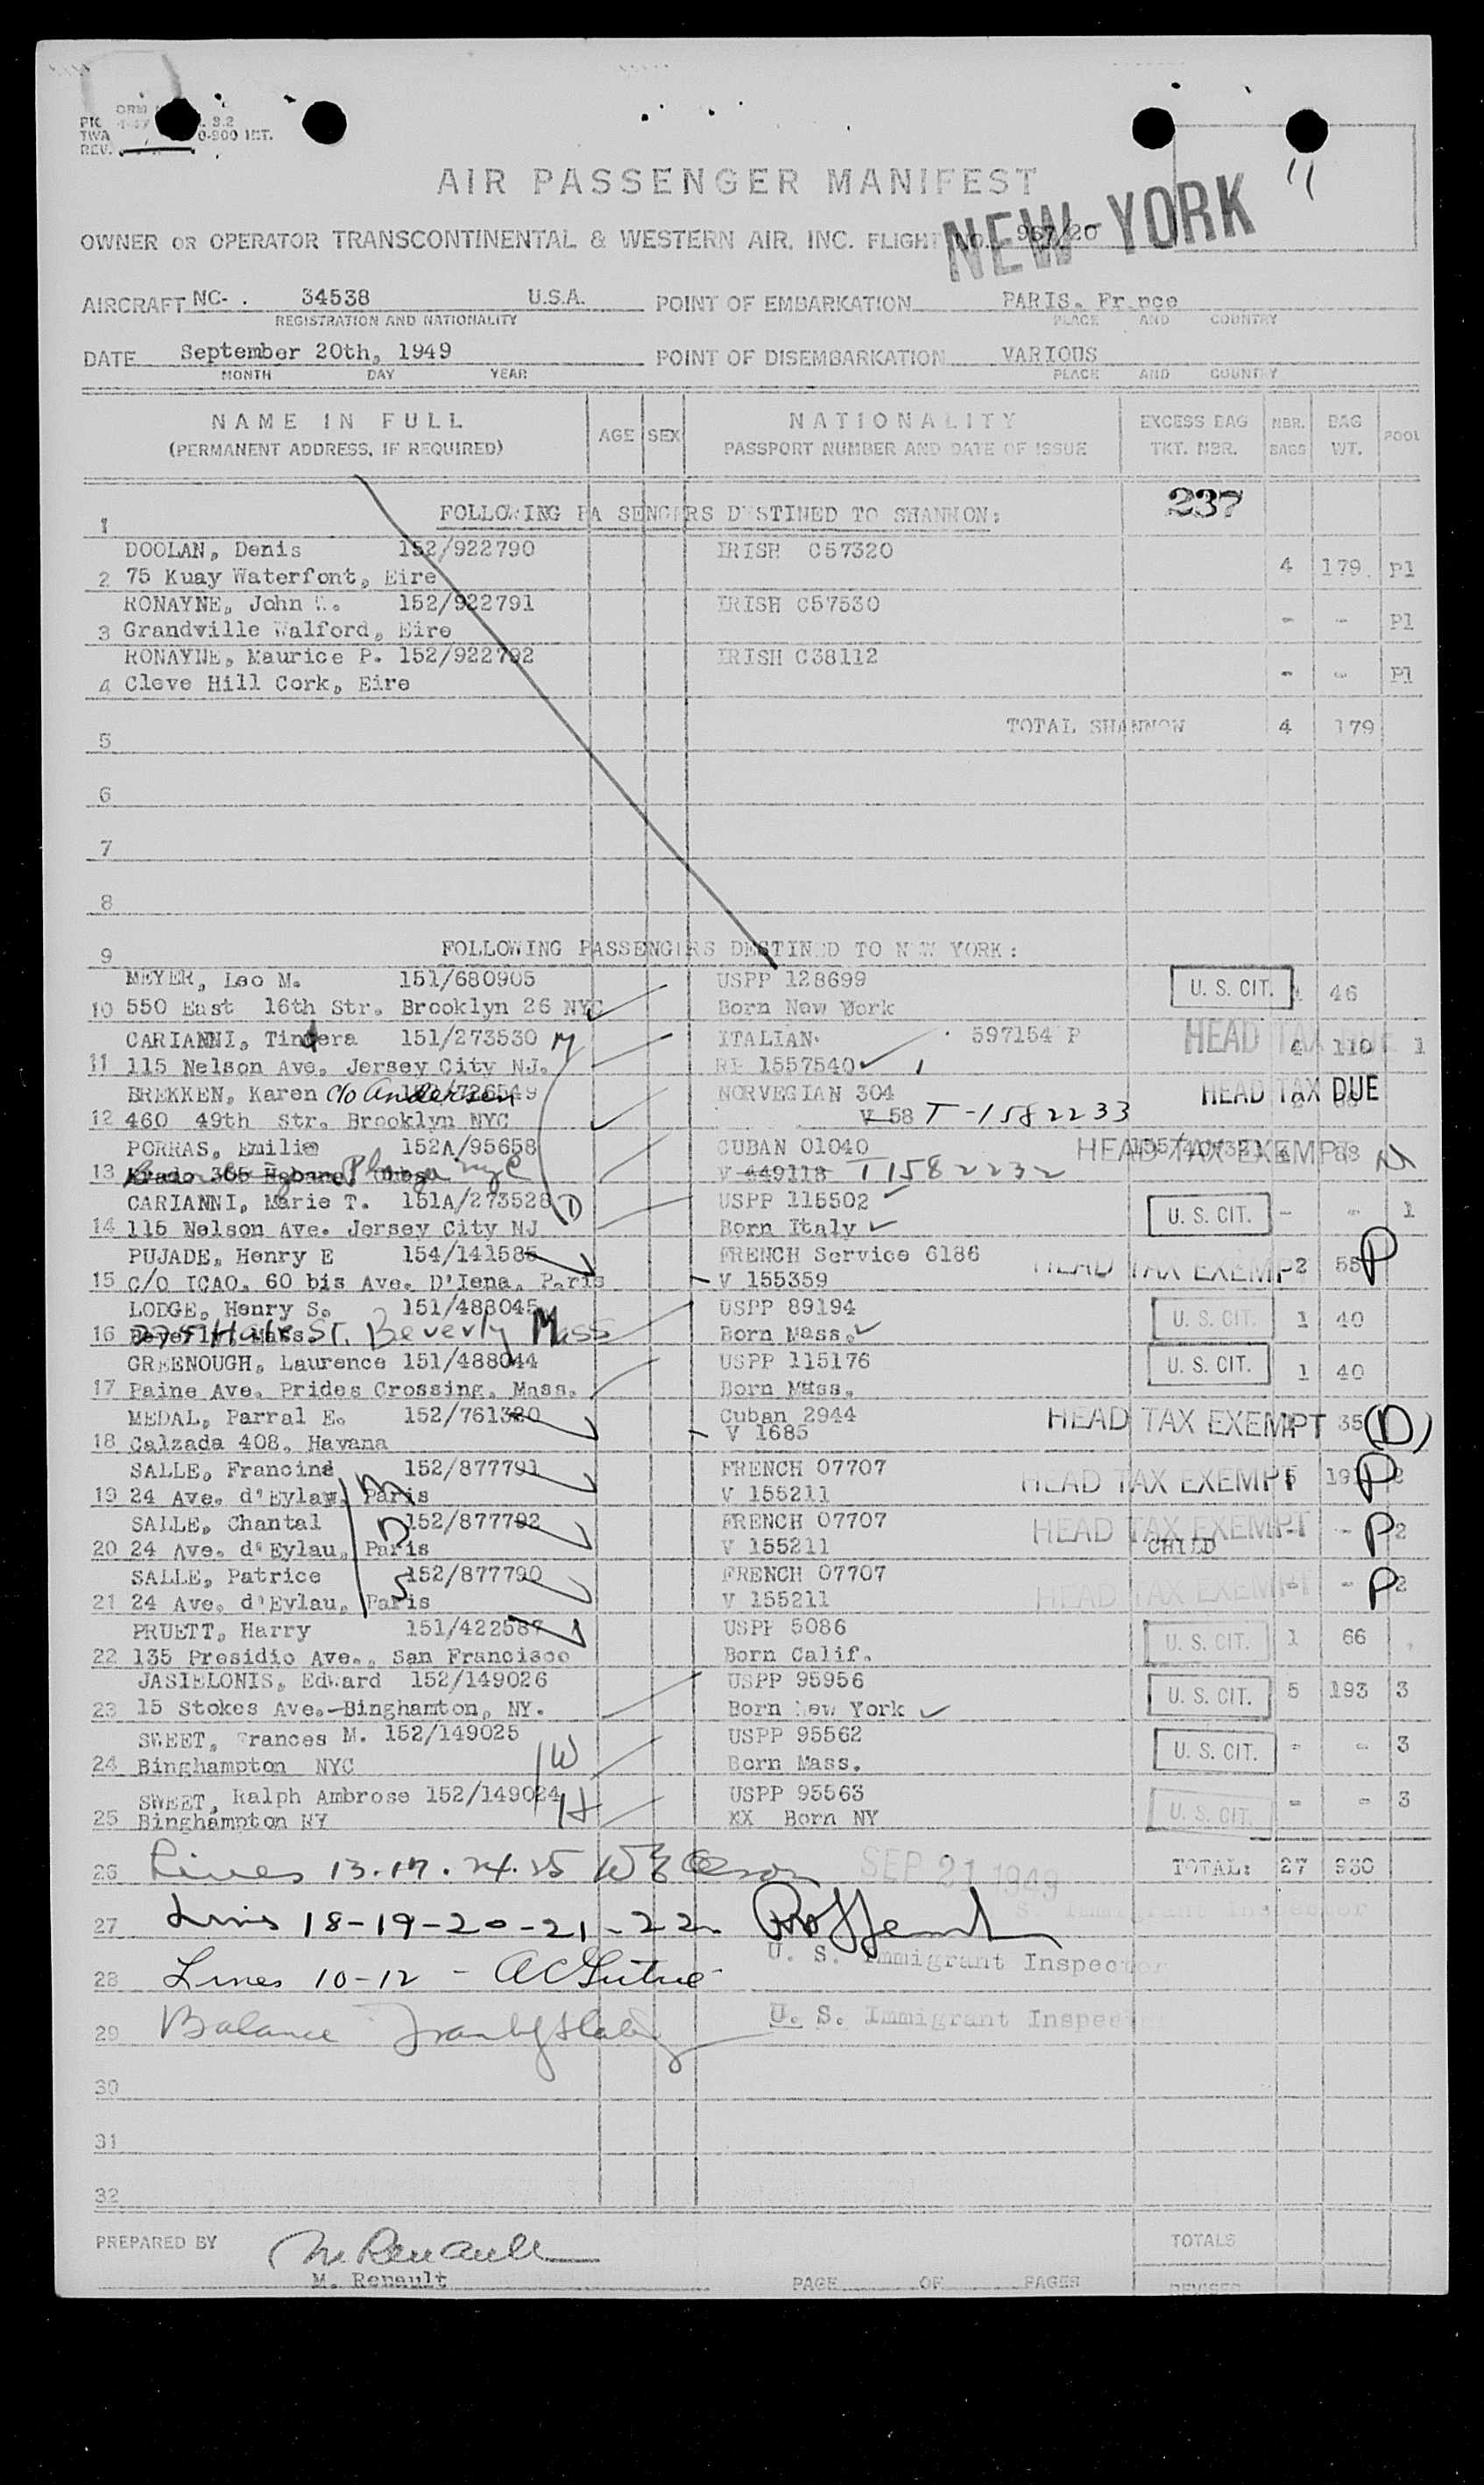 AIR PASSENGER MANIFEST
11
OWNER OR OPERATOR TRANSCONTINENTAL & WESTERN AIR, INC. FLIGHT NO. 967/20
NEW YORK
AIRCRAFT NC- . 34538 U.S.A. POINT OF EMBARKATION PARIS, Fr nce
REGISTRATION AND NATIONALITY PLACE AND COUNTRY
DATE September 20th, 1949 POINT OF DISEMBARKATION VARIOUS
MONTH DAY YEAR PLACE AND COUNTRY
NAME IN FULL AGE SEX NATIONALITY EXCESS BAG NBR. BAG POOL
(PERMANENT ADDRESS, IF REQUIRED) PASSPORT NUMBER AND DATE OF ISSUE TKT. NBR. BAGS WT.
237
1 FOLLOWING PA SENGERS D STINED TO SHANNON:
DOOLAN, Denis 152/922790 IRISH C57320
2 75 Kuay Waterfont, Eire 4 179 P1
RONAYNE, John 152/922791 IRISH C57530
3 Grandville Walford, Eire - - P1
RONAYNE, Maurice P. 152/922792 IRISH C38112
4 Cleve Hill Cork, Eire - - P1
5 TOTAL SHANNON 4 179
6
7
8
9 FOLLOWING PASSENGERS DESTINED TO NEW YORK:
MEYER, Leo M. 151/680905 USPP 128699 U. S. CIT.
10 550 East 16th Str. Brooklyn 26 NYC Born New York 46
CARIANNI, Tindera 151/273530 M ITALIAN. 597154 P HEAD TAX DUE
11 115 Nelson Ave. Jersey City NJ. RE 1557540 4 110 1
BREKKEN, Karen c/o Andersen NORVEGIAN 304 HEAD TAX DUE
12 460 49th Str. Brooklyn NYC V 58 T-1582233
PORRAS, Emilio 152A/95658 CUBAN 01040 HEAD TAX EXEMPT
13 Prado 365 Habana NYC V 449118 T1582232 N
CARIANNI, Marie T. 151A/273528 D USPP 115502 U. S. CIT.
14 115 Nelson Ave. Jersey City NJ Born Italy - - 1
PUJADE, Henry E 154/141585 FRENCH Service 6186 HEAD TAX EXEMP
15 C/O ICAO, 60 bis Ave. D'Iena, Paris V 155359 2 55 P
LODGE, Henry S. 151/488045 USPP 89194 U. S. CIT.
16 Hale St. Beverly Mass Born Mass. 1 40
GREENOUGH, Laurence 151/488044 USPP 115176 U. S. CIT.
17 Paine Ave. Prides Crossing, Mass. Born Mass. 1 40
MEDAL, Parral E. 152/761320 Cuban 2944 HEAD TAX EXEMPT
18 Calzada 408, Havana V 1685 35 (D)
SALLE, Francine 152/877791 FRENCH 07707 HEAD TAX EXEMPT
19 24 Ave. d'Eylau, Paris M V 155211 5 P 2
SALLE, Chantal 152/877792 FRENCH 07707 HEAD TAX EXEMPT
20 24 Ave. d'Eylau, Paris D V 155211 CHILD - P 2
SALLE, Patrice 152/877790 FRENCH 07707 HEAD TAX EXEMPT
21 24 Ave. d'Eylau, Paris S V 155211 - - P 2
PRUETT, Harry 151/422587 USPP 5086 U. S. CIT.
22 135 Presidio Ave., San Francisco Born Calif. 1 66
JASIELONIS, Edward 152/149026 USPP 95956 U. S. CIT.
23 15 Stokes Ave.-Binghamton, NY. Born New York 5 193 3
SWEET, Frances M. 152/149025 USPP 95562 U. S. CIT.
24 Binghampton NYC W Born Mass. - - 3
SWEET, Ralph Ambrose 152/149024 USPP 95563 U. S. CIT.
25 Binghampton NY H XX Born NY - - 3
26 Lines 13.17.24.25 SEP 21 1949 TOTAL: 27 930
27 Lines 18-19-20-21-22 S. Immigrant Inspector
28 Lines 10-12 - U. S. Immigrant Inspector
29 Balance U. S. Immigrant Inspec
30
31
32
PREPARED BY M. Renault TOTALS
M. Renault
PAGE OF PAGES